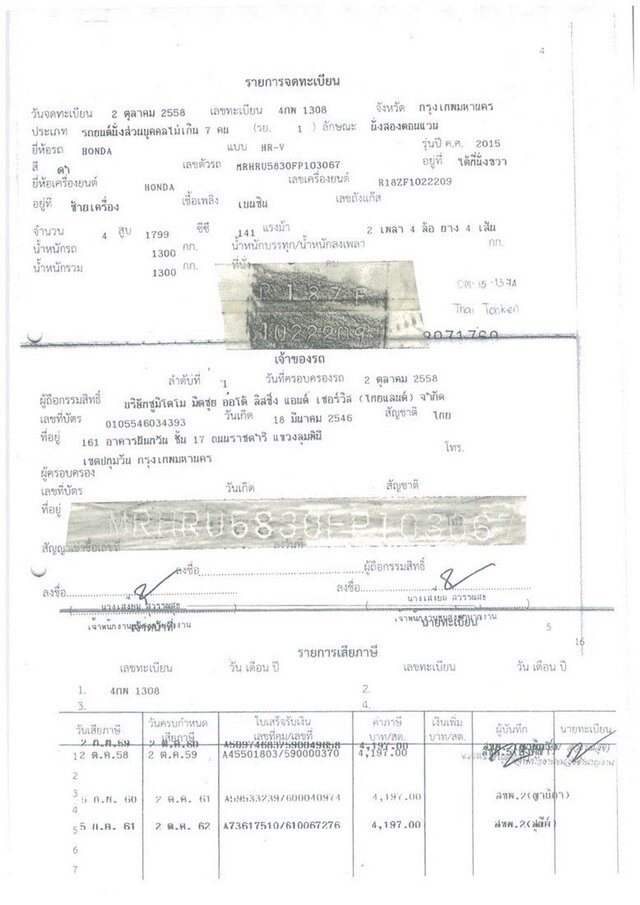 4
รายการจดทะเบียน
วันจดทะเบียน 2 ตุลาคม 2558 เลขทะเบียน 4กพ 1308 จังหวัด กรุงเทพมหานคร
ประเภท รถยนต์นั่งส่วนบุคคลไม่เกิน 7 คน (รย. 1 ) ลักษณะ นั่งสองตอนแวน
ยี่ห้อรถ HONDA แบบ HR-V รุ่นปี ค.ศ. 2015
สี ดำ เลขตัวรถ MRHRU5830FP103067 อยู่ที่ ใต้ที่นั่งขวา
ยี่ห้อเครื่องยนต์ HONDA เลขเครื่องยนต์ R18ZF1022209
อยู่ที่ ซ้ายเครื่อง เชื้อเพลิง เบนซิน เลขถังแก๊ส
จำนวน 4 สูบ 1799 ซีซี 141 แรงม้า 2 เพลา 4 ล้อ ยาง 4 เส้น
น้ำหนักรถ 1300 กก. น้ำหนักบรรทุก/น้ำหนักลงเพลา กก.
น้ำหนักรวม 1300 กก. ที่นั่ง คน
R18ZF
1022209
Thai Tanken
เจ้าของรถ
ลำดับที่ 1 วันที่ครอบครองรถ 2 ตุลาคม 2558
ผู้ถือกรรมสิทธิ์ บริษัทซูมิโตโม มิตซุย อ๊อโต้ ลิสซิ่ง แอนด์ เซอร์วิส (ไทยแลนด์) จำกัด
เลขที่บัตร 0105546034393 วันเกิด 18 มีนาคม 2546 สัญชาติ ไทย
ที่อยู่ 161 อาคารนันทวัน ชั้น 17 ถนนราชดำริ แขวงลุมพินี
โทร.
เขตปทุมวัน กรุงเทพมหานคร
ผู้ครอบครอง
เลขที่บัตร วันเกิด สัญชาติ
ที่อยู่
MRHRU5830FP103067
สัญญาเช่าซื้อเลขที่ ลงวันที่
ลงชื่อ ผู้ถือกรรมสิทธิ์
ลงชื่อ ลงชื่อ
เจ้าหน้าที่ นายทะเบียน
5
16
รายการเสียภาษี
เลขทะเบียน วัน เดือน ปี เลขทะเบียน วัน เดือน ปี
1. 4กพ 1308 2.
3. 4.
วันเสียภาษี วันครบกำหนดเสียภาษี ใบเสร็จรับเงิน เลขที่คุม/เลขที่ ค่าภาษี บาท/สต. เงินเพิ่ม บาท/สต. ผู้บันทึก นายทะเบียน
2 ก.ย.59 2 ต.ค.60 A50974683/590049858 4,197.00
1 2 ต.ค.58 2 ต.ค.59 A45501803/590000370 4,197.00
2
3 5 ก.ย. 60 2 ต.ค. 61 A59533239/600040974 4,197.00 สขพ.2
4
5 5 ก.ค. 61 2 ต.ค. 62 A73617510/610067276 4,197.00 สขพ.2
6
7